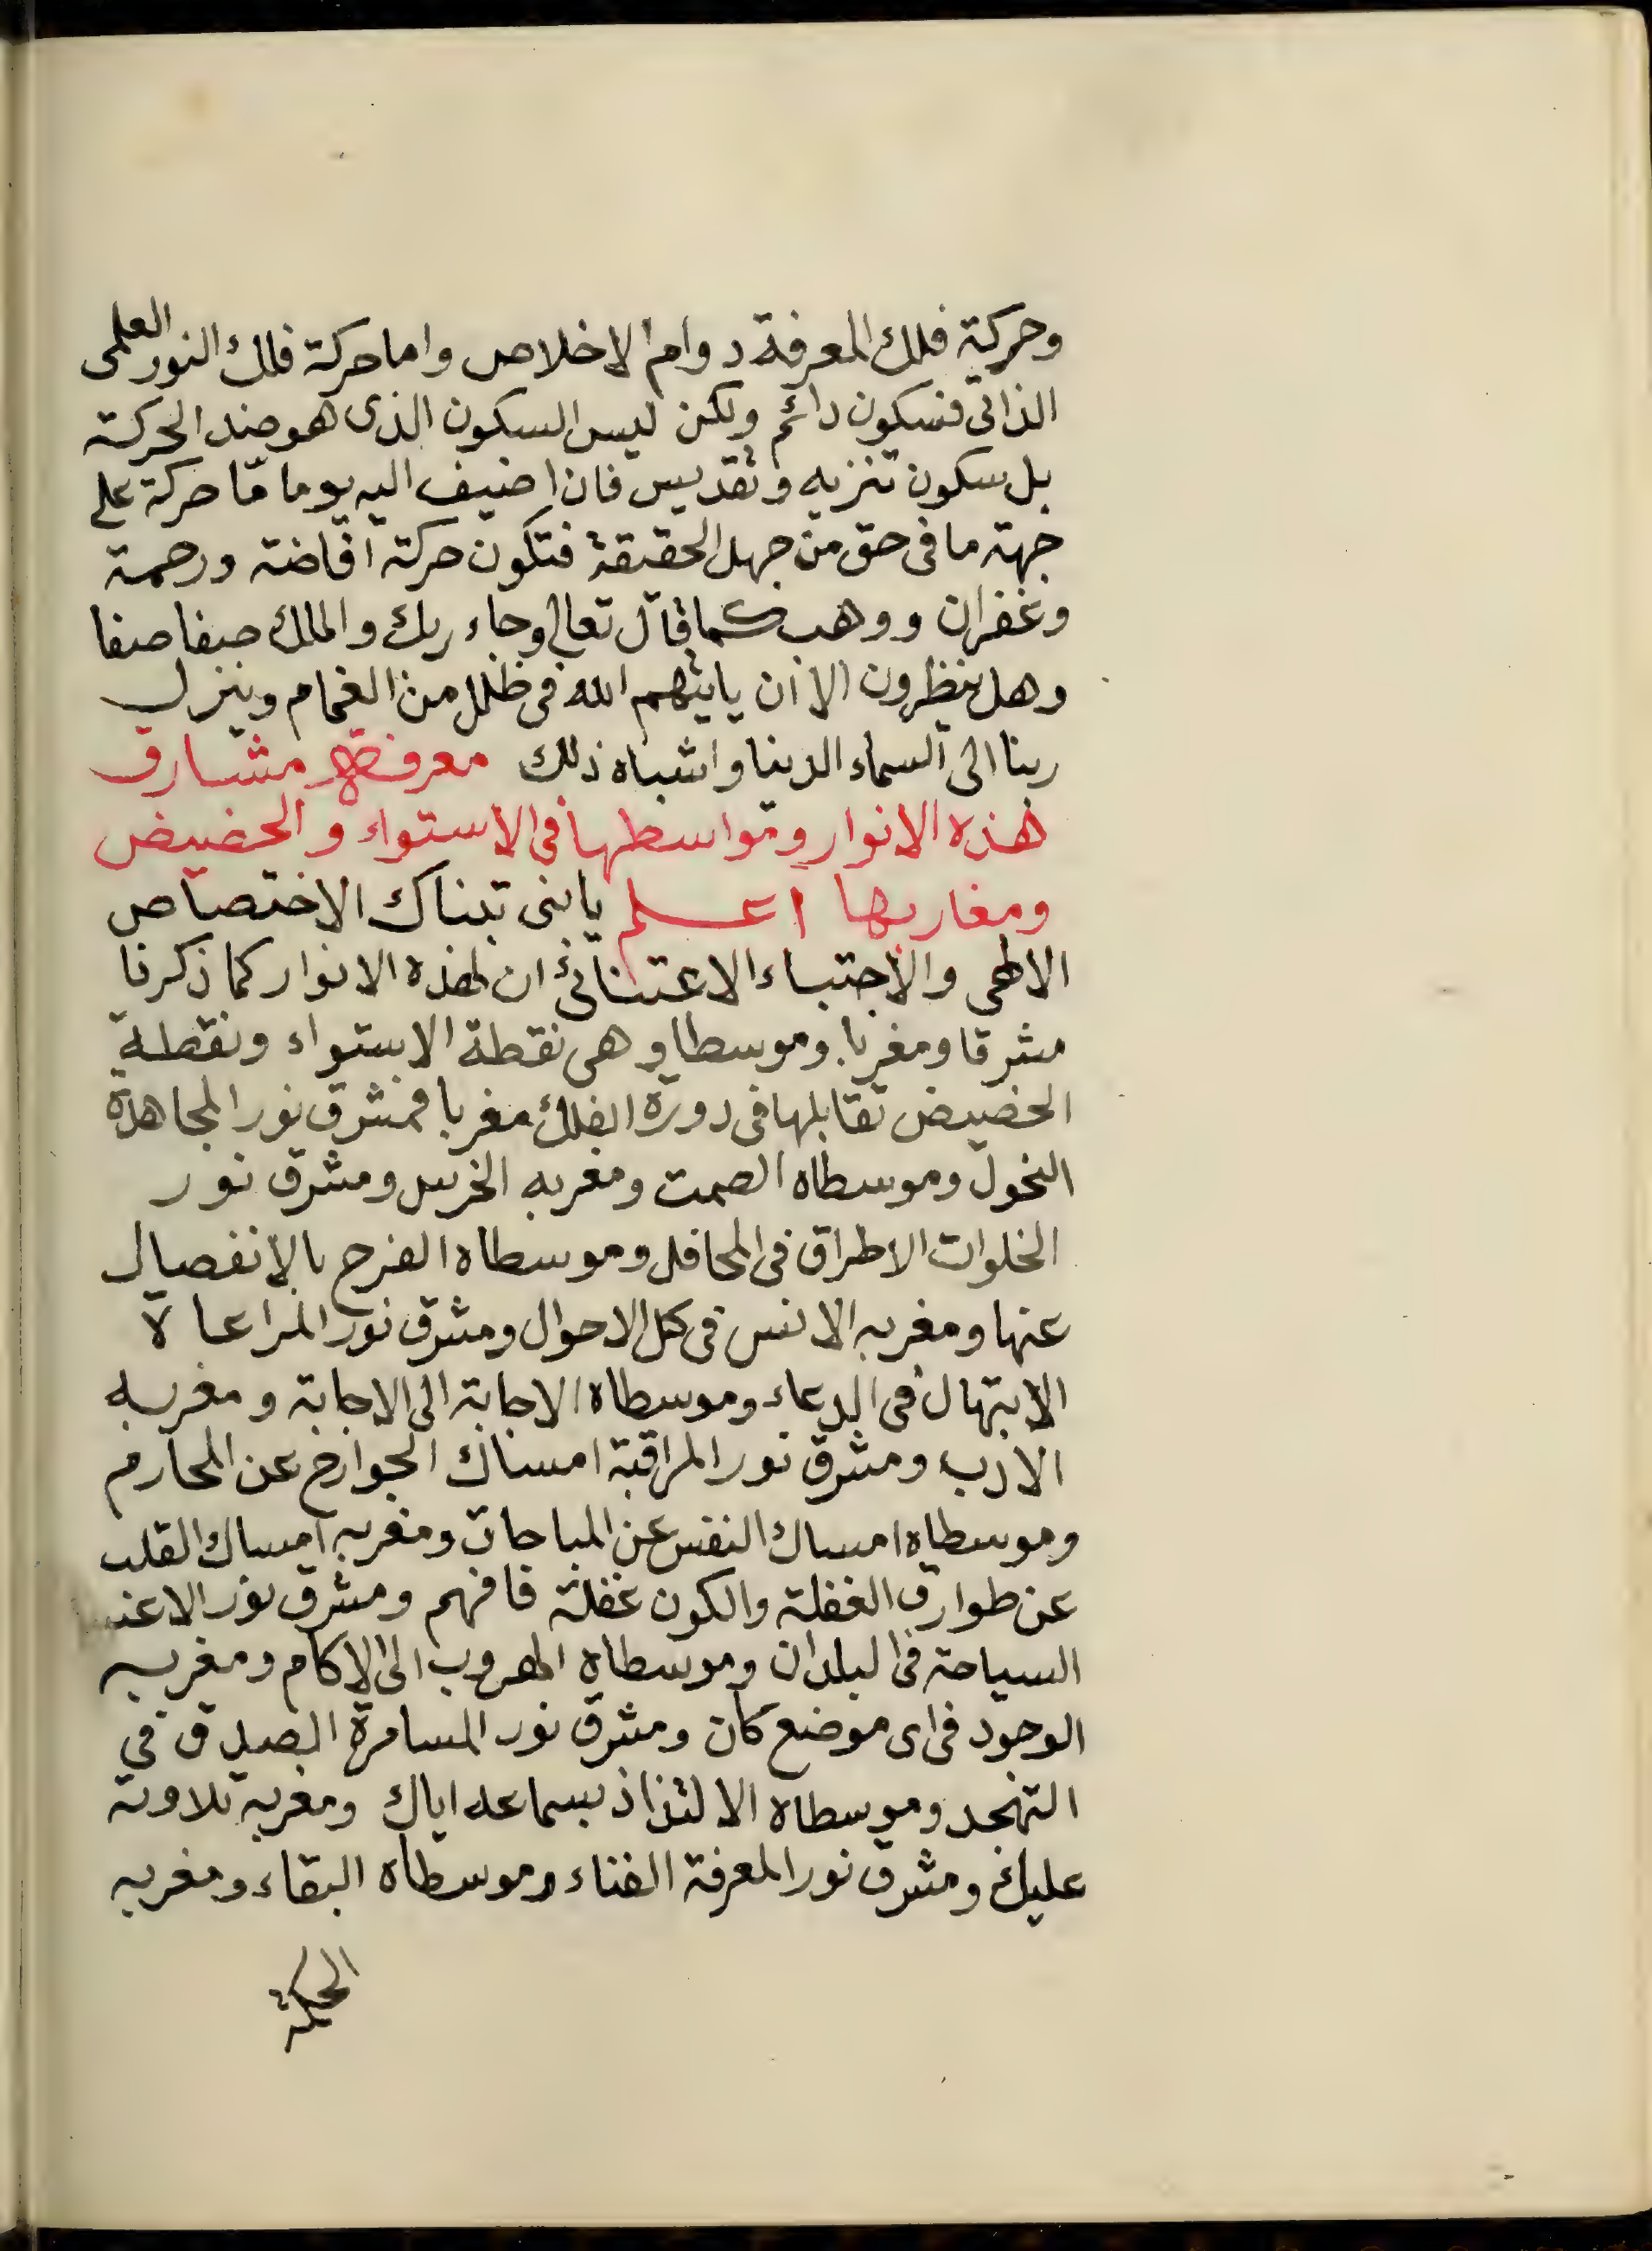 وحركة فلك المعرفة دوام الاخلاص واما حركة فلك النور العلمى
الذاتى فسكون دائم ولكن ليس السكون الذى هو ضد الحركة
بل سكون تنزيه وتقديس فان اضيف اليه يوما مّا حركة على
جهة ما فى حق من جهل الحقيقة فتكون حركة افاضة ورحمة
وغفران ووهب كما قال تعالى وجاء ربك والملك صفا صفا
وهل ينظرون الا ان ياتيهم الله فى ظلل من الغمام وينزل
ربنا الى السماء الدنيا واشباه ذلك معرفة مشارق
هذه الانوار ومواسطها فى الاستواء والحضيض
ومغاربها اعلم يا بنى الاختصاص
الالهى والاجتباء الاعتنائى ان لهذه الانوار كما ذكرنا
مشرقا ومغربا وموسطا وهى نقطة الاستواء ونقطة
الحضيض تقابلها فى دورة الفلك مغربا فمشرق نور المجاهدة
النحول وموسطاه الصمت ومغربه الخرس ومشرق نور
الخلوات الاطراق فى المحافل وموسطاه الفرح بالانفصال
عنها ومغربه الانس فى كل الاحوال ومشرق نور المراعاة
الابتهال فى الدعاء وموسطاه الاجابة الى الاجابة ومغربه
الادب ومشرق نور المراقبة امساك الجوارح عن المحارم
وموسطاه امساك النفس عن المباحات ومغربه امساك القلب
عن طوارق الغفلة والكون غفلة فافهم ومشرق نور
السياحة فى البلدان وموسطاه الهروب الى الاكام ومغربه
الوجود فى اى موضع كان ومشرق نور المسامرة الصدق فى
التهجد وموسطاه الالتذاذ بسماعه اياك ومغربه تلاوته
عليك ومشرق نور المعرفة الفناء وموسطاه البقاء ومغربه
الحكمة